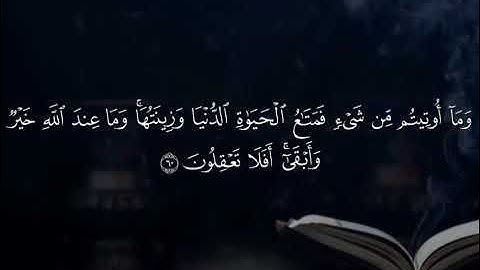 وَمَآ أُوتِيتُم مِّن شَىْءٍ فَمَتَـٰعُ ٱلْحَيَوٰةِ ٱلدُّنْيَا وَزِينَتُهَا ۚ وَمَا عِندَ ٱللَّهِ خَيْرٌ
وَأَبْقَىٰٓ ۚ أَفَلَا تَعْقِلُونَ ۝٦٠